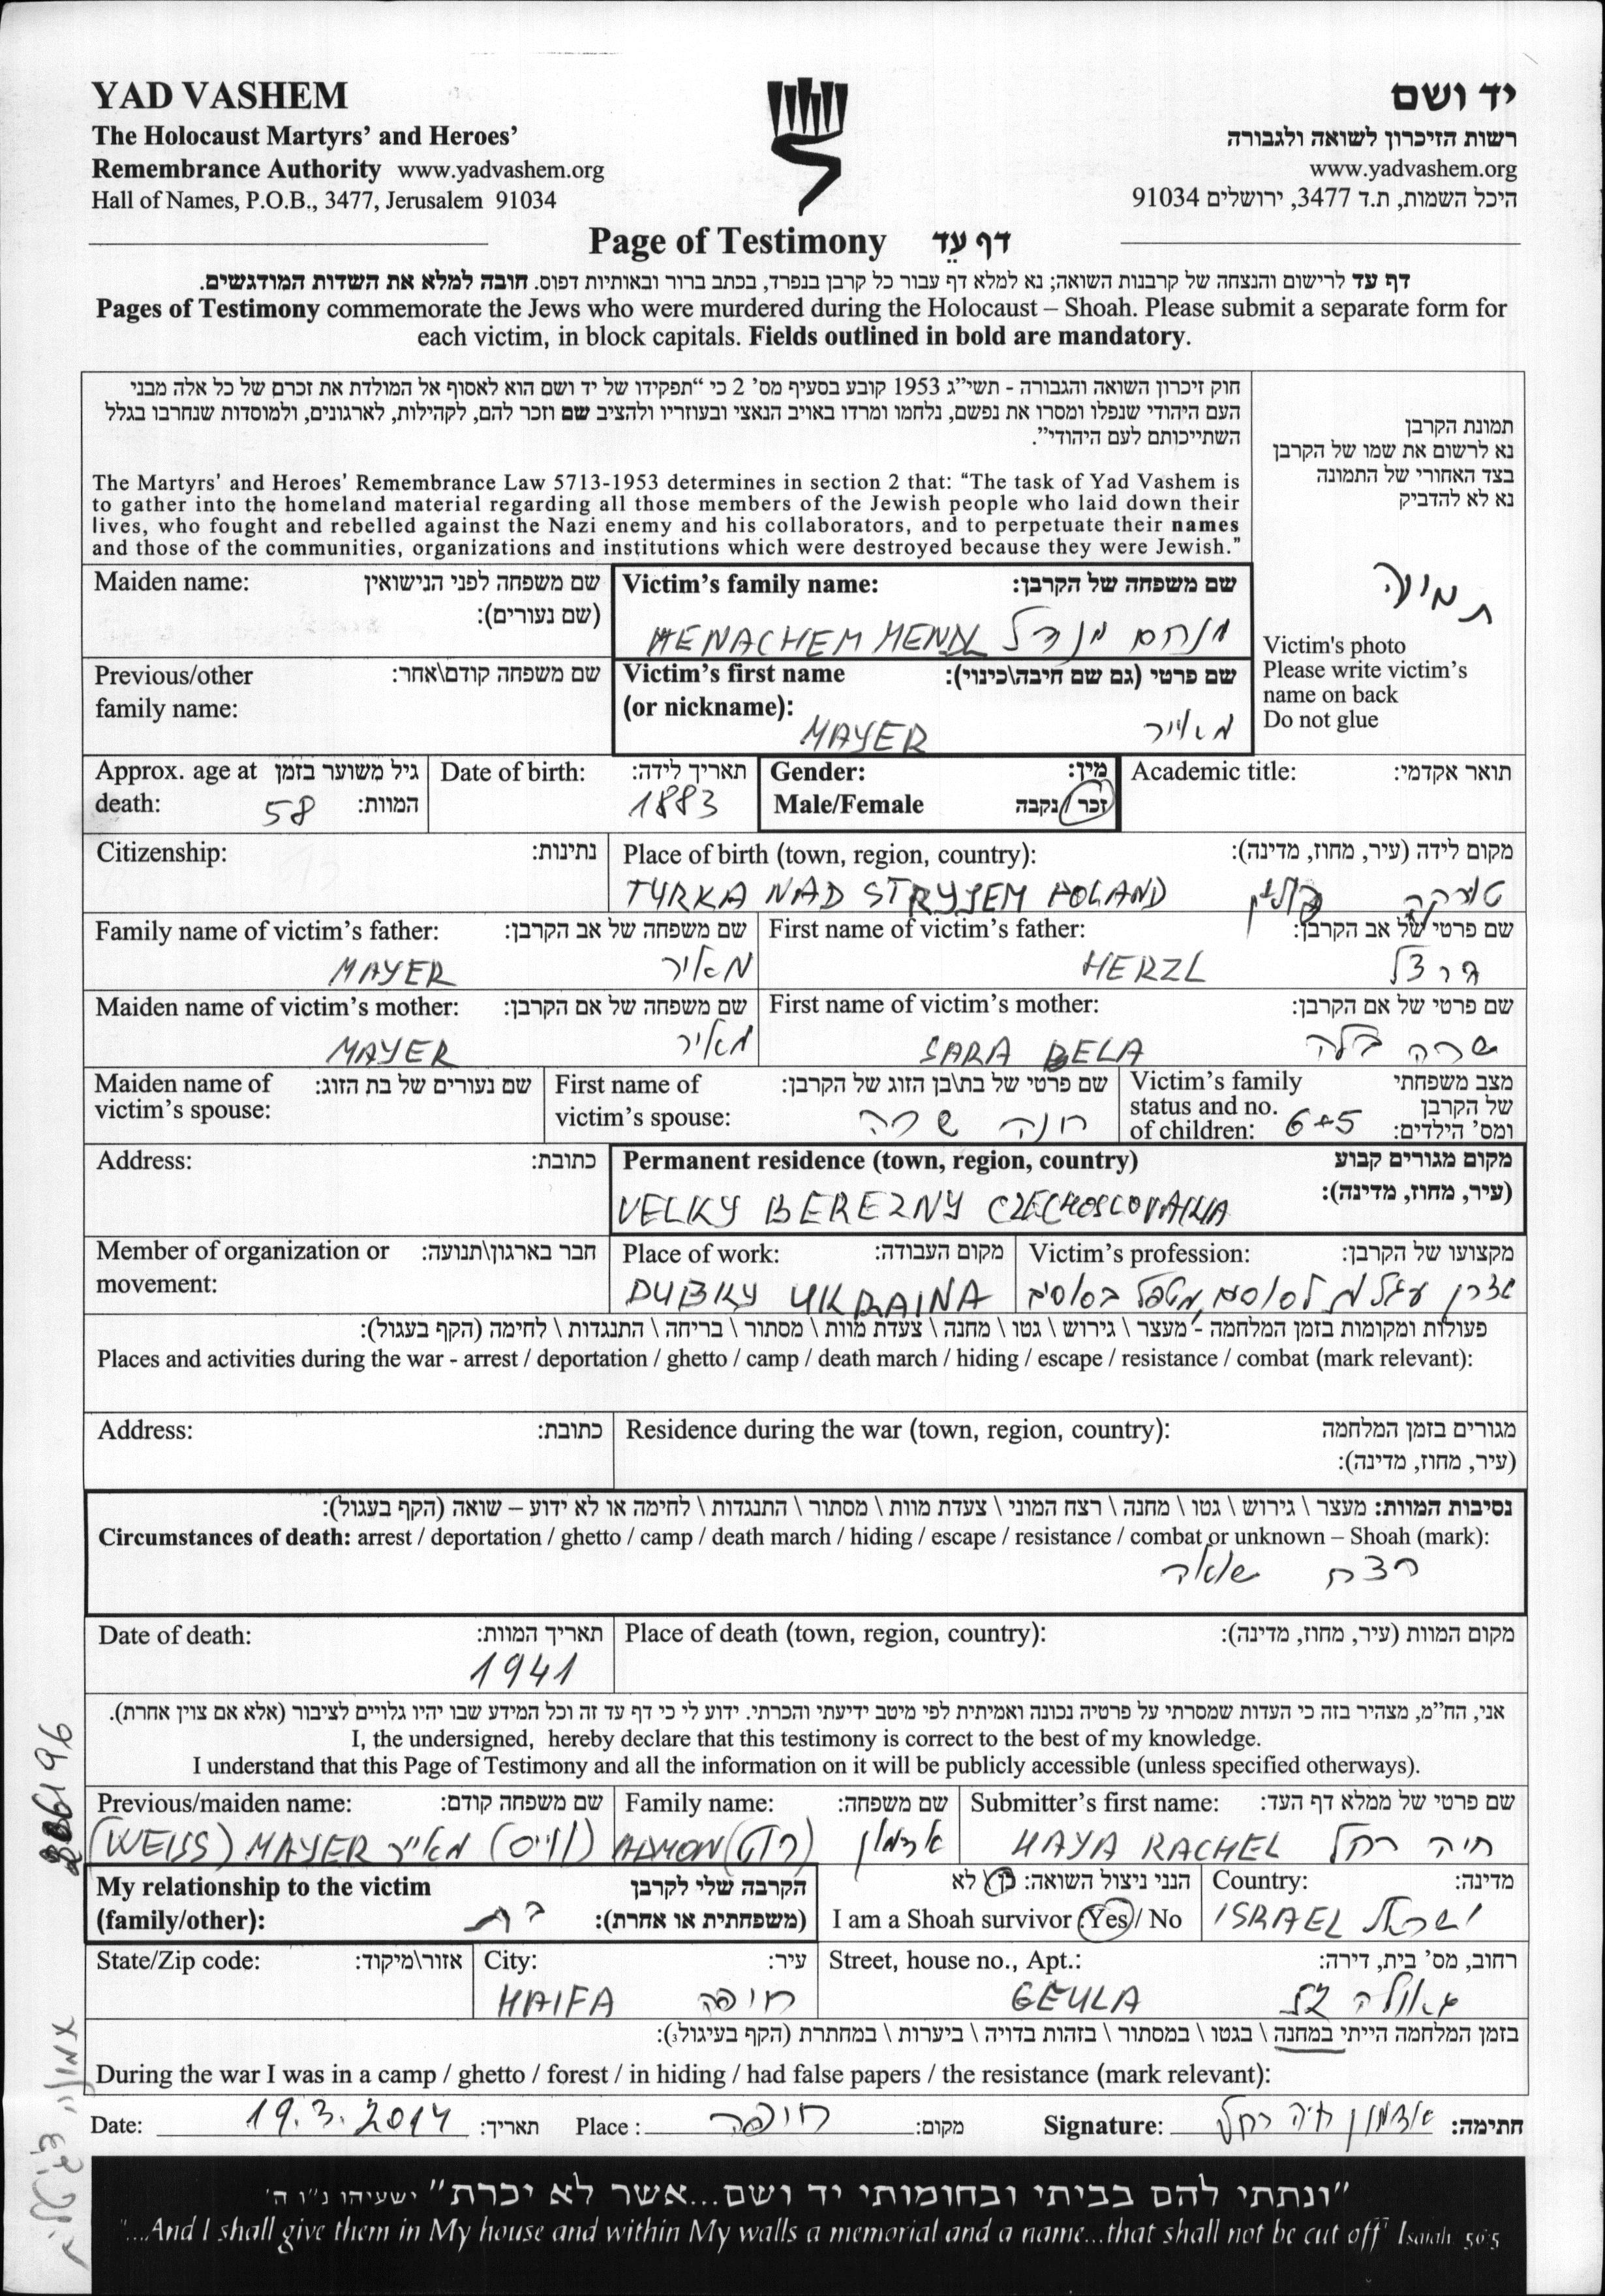 YAD VASHEM
יד ושם
The Holocaust Martyrs’ and Heroes’
רשות הזיכרון לשואה ולגבורה
Remembrance Authority www.yadvashem.org
www.yadvashem.org
Hall of Names, P.O.B., 3477, Jerusalem 91034
היכל השמות, ת.ד 3477, ירושלים 91034
Page of Testimony דף עֵד
דף עד לרישום והנצחה של קרבנות השואה; נא למלא דף עבור כל קרבן בנפרד, בכתב ברור ובאותיות דפוס. חובה למלא את השדות המודגשים.
Pages of Testimony commemorate the Jews who were murdered during the Holocaust – Shoah. Please submit a separate form for
each victim, in block capitals. Fields outlined in bold are mandatory.
חוק זיכרון השואה והגבורה - תשי״ג 1953 קובע בסעיף מס' 2 כי “תפקידו של יד ושם הוא לאסוף אל המולדת את זכרם של כל אלה מבני
העם היהודי שנפלו ומסרו את נפשם, נלחמו ומרדו באויב הנאצי ובעוזריו ולהציב שם וזכר להם, לקהילות, לארגונים, ולמוסדות שנחרבו בגלל
השתייכותם לעם היהודי”.
The Martyrs’ and Heroes’ Remembrance Law 5713-1953 determines in section 2 that: “The task of Yad Vashem is
to gather into the homeland material regarding all those members of the Jewish people who laid down their
lives, who fought and rebelled against the Nazi enemy and his collaborators, and to perpetuate their names
and those of the communities, organizations and institutions which were destroyed because they were Jewish.”
תמונת הקרבן
נא לרשום את שמו של הקרבן
בצד האחורי של התמונה
נא לא להדביק
תמונה
Victim's photo
Please write victim’s
name on back
Do not glue
Maiden name: שם משפחה לפני הנישואין
(שם נעורים):
Victim’s family name: שם משפחה של הקרבן:
MENACHEM MENDL מנחם מנדל
Previous/other שם משפחה קודם\אחר:
family name:
Victim’s first name שם פרטי (גם שם חיבה\כינוי):
(or nickname):
MAYER מאייר
Approx. age at גיל משוער בזמן
death: 58 המוות:
Date of birth: תאריך לידה:
1883
Gender: מין:
Male/Female זכר/נקבה
Academic title: תואר אקדמי:
Citizenship: נתינות:
Place of birth (town, region, country): מקום לידה (עיר, מחוז, מדינה):
TYRKA NAD STRYJEM POLAND טורקה פולין
Family name of victim’s father: שם משפחה של אב הקרבן:
MAYER מאיר
First name of victim’s father: שם פרטי של אב הקרבן:
HERZL הרצל
Maiden name of victim’s mother: שם משפחה של אם הקרבן:
MAYER מאיר
First name of victim’s mother: שם פרטי של אם הקרבן:
SARA BELA שרה בלה
Maiden name of שם נעורים של בת הזוג:
victim’s spouse:
First name of שם פרטי של בת\בן הזוג של הקרבן:
victim’s spouse: חנה שרה
Victim’s family מצב משפחתי
status and no. של הקרבן
of children: 6+5 ומס' הילדים:
Address: כתובת:
Permanent residence (town, region, country) מקום מגורים קבוע
(עיר, מחוז, מדינה):
VELKY BEREZNY CZECHOSLOVAKIA
Member of organization or חבר בארגון\תנועה:
movement:
Place of work: מקום העבודה:
DUBKY UKRAINA
Victim’s profession: מקצועו של הקרבן:
עגלות לסוסים, מטפל בסוסים
פעולות ומקומות בזמן המלחמה - מעצר \ גירוש \ גטו \ מחנה \ צעדת מוות \ מסתור \ בריחה \ התנגדות \ לחימה (הקף בעגול):
Places and activities during the war - arrest / deportation / ghetto / camp / death march / hiding / escape / resistance / combat (mark relevant):
Address: כתובת:
Residence during the war (town, region, country): מגורים בזמן המלחמה
(עיר, מחוז, מדינה):
נסיבות המוות: מעצר \ גירוש \ גטו \ מחנה \ רצח המוני \ צעדת מוות \ מסתור \ התנגדות \ לחימה או לא ידוע – שואה (הקף בעגול):
Circumstances of death: arrest / deportation / ghetto / camp / death march / hiding / escape / resistance / combat or unknown – Shoah (mark):
רצח שואה
Date of death: תאריך המוות:
1941
Place of death (town, region, country): מקום המוות (עיר, מחוז, מדינה):
אני, הח״מ, מצהיר בזה כי העדות שמסרתי על פרטיה נכונה ואמיתית לפי מיטב ידיעתי והכרתי. ידוע לי כי דף עד זה וכל המידע שבו יהיו גלויים לציבור (אלא אם צוין אחרת).
I, the undersigned, hereby declare that this testimony is correct to the best of my knowledge.
I understand that this Page of Testimony and all the information on it will be publicly accessible (unless specified otherways).
Previous/maiden name: שם משפחה קודם:
(WEISS) MAYER מאייר (ווייס)
Family name: שם משפחה:
ADMON אדמון
Submitter’s first name: שם פרטי של ממלא דף העד:
HAYA RACHEL חיה רחל
My relationship to the victim הקרבה שלי לקרבן
(family/other): בת (משפחתית או אחרת):
הנני ניצול השואה: כן/ לא
I am a Shoah survivor :Yes / No
Country: מדינה:
ISRAEL ישראל
State/Zip code: אזור\מיקוד:
City: עיר:
HAIFA חיפה
Street, house no., Apt.: רחוב, מס' בית, דירה:
GEULA גאולה
בזמן המלחמה הייתי במחנה \ בגטו \ במסתור \ בזהות בדויה \ ביערות \ במחתרת (הקף בעיגול):
During the war I was in a camp / ghetto / forest / in hiding / had false papers / the resistance (mark relevant):
Date: 19.3.2014 תאריך: Place : חיפה מקום: Signature: אדמון חיה רחל חתימה:
“ונתתי להם בביתי ובחומותי יד ושם...אשר לא יכרת” ישעיהו נ״ו ה'
“...And I shall give them in My house and within My walls a memorial and a name...that shall not be cut off” Isaiah 56:5